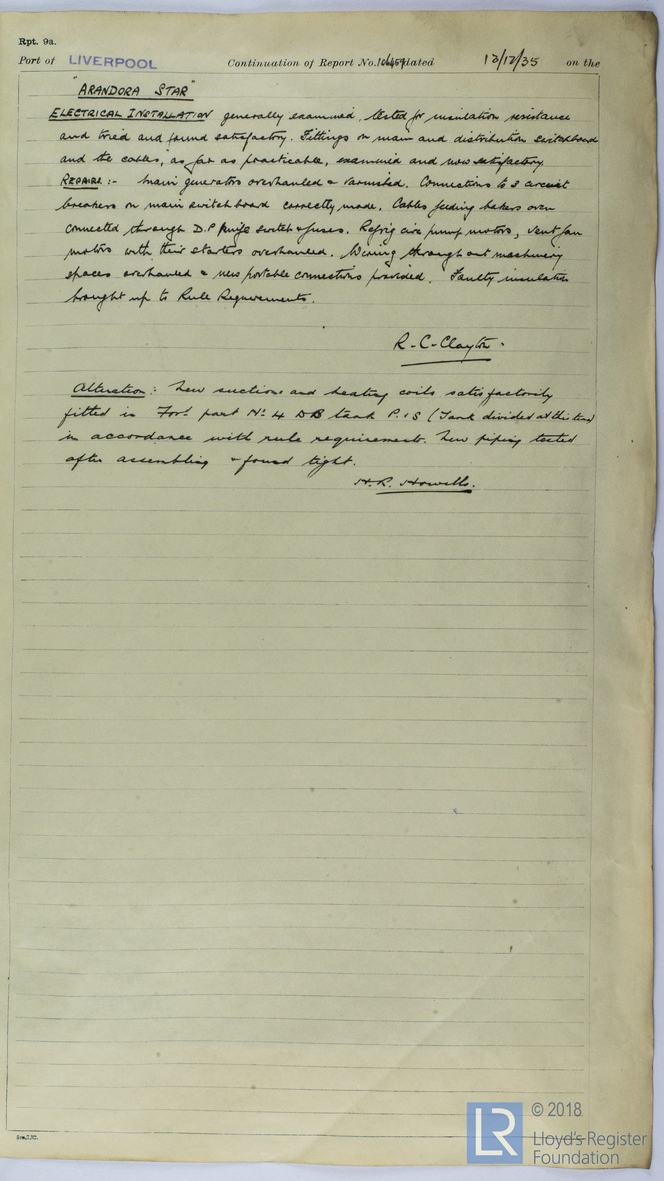 Rpt. 9a.
Port of LIVERPOOL Continuation of Report No. dated 12/12/35 on the
"ARANDORA STAR"
ELECTRICAL INSTALLATION generally examined, tested for insulation resistance
and tried and found satisfactory. Fittings on main and distribution switchboard
and the cables, as far as practicable, examined and now satisfactory
REPAIRS :- Main generators overhauled & varnished. Connections to 3 circuit
breakers on main switchboard correctly made. Cables feeding bakers oven
connected through D.P knife switch & fuses. Refrig circ pump motors, vent fan
motors with their starters overhauled. Wiring throughout machinery
spaces overhauled & new portable connections provided. Faulty insulation
brought up to Rule Requirements.
R-C-Clayton.
Alteration : New suctions and heating coils satisfactorily
fitted in For'd part No. 4 DB tank P.&S (Tank divided at this time)
in accordance with rule requirements. New piping tested
after assembling & found tight.
H.R. Howells.
© 2018
LR
Lloyd's Register
Foundation